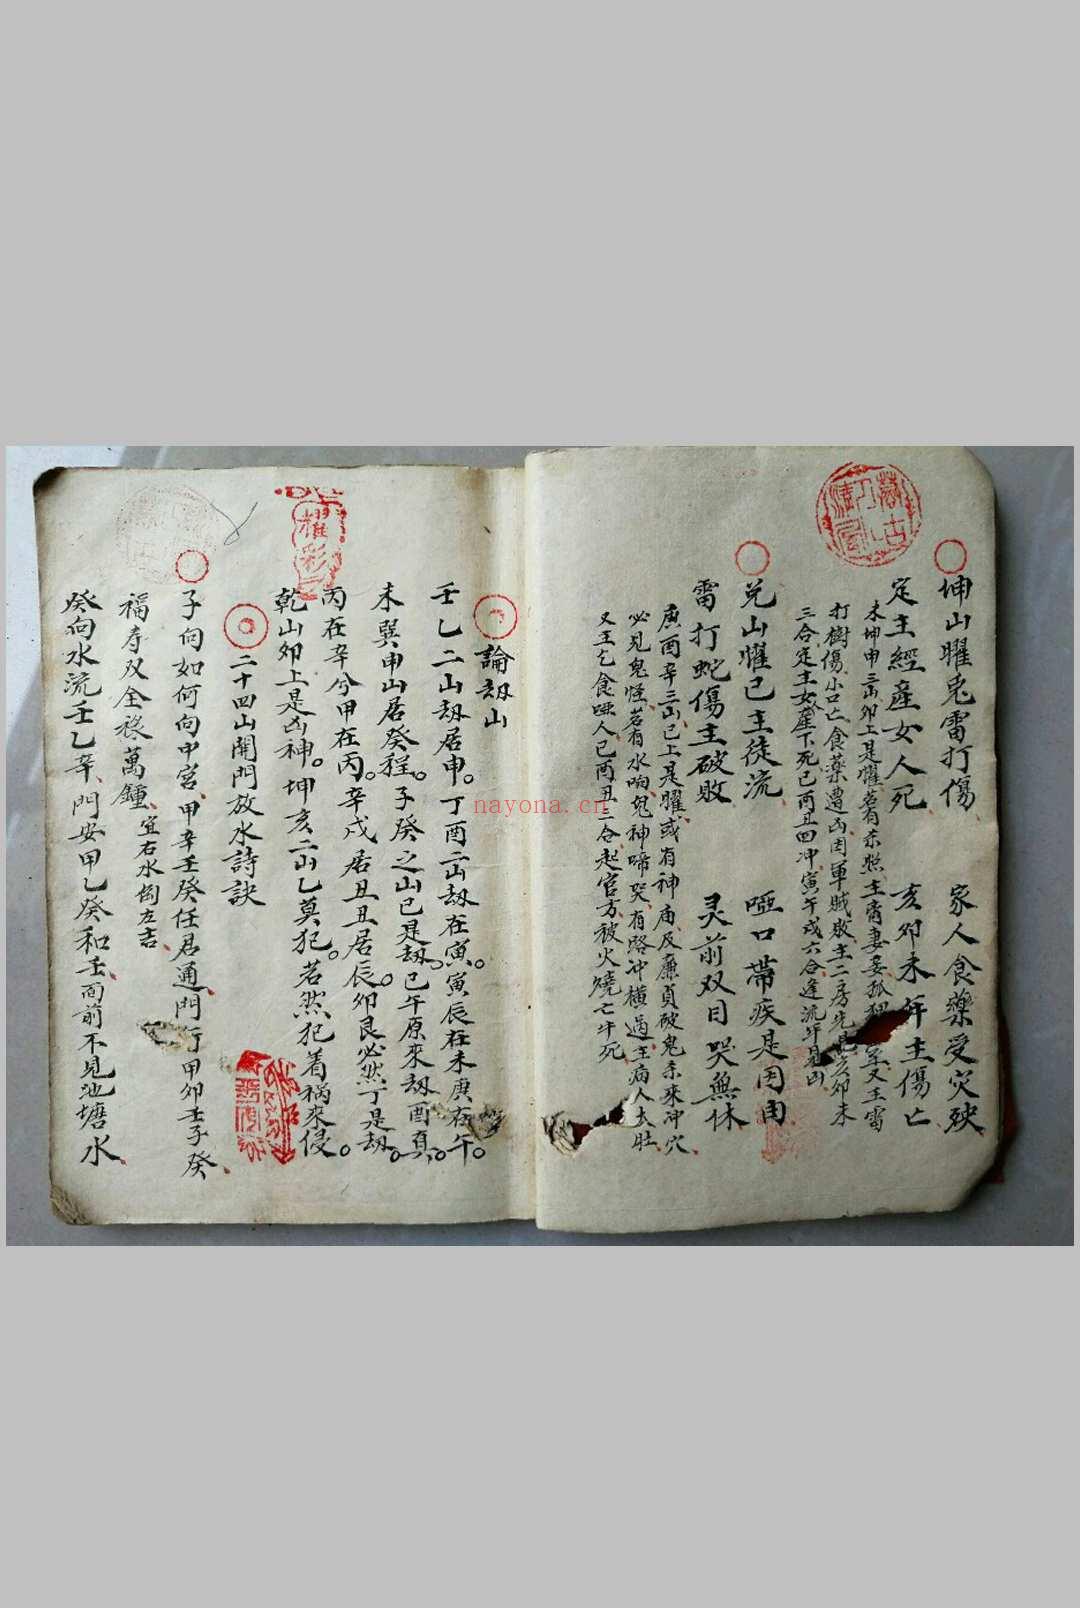 坤山曜兎雷打傷 家人食藥受灾殃
定主經産女人死 亥卯未年主傷亡
未坤申三山卯上是曜若有杀照主喪妻妾孤 室又主雷
打樹傷小口亡食藥遭凶因軍賊敗主二房先見亥卯未
三合定主女産下死巳酉丑四冲寅午戌六合逢流年見凶
兌山曜巳主徒流 啞口帶疾是因由
雷打蛇傷主破敗 灵前双目哭無休
庚酉辛三山巳上是曜或有神庙及廉貞破鬼杀來冲穴
必見鬼怪若有水响鬼神啼哭有路冲橫過主病人大肚
又主乞食啞人巳酉丑三合起官方被火燒亡年死
論刼山
壬乙二山刼居申。丁酉二山刼在寅。寅辰在未庚在午。
未巽申山居癸程。子癸之山巳是刼。巳午原來刼酉真。
丙在辛兮甲在丙。辛戌居丑丑居辰。卯艮必然丁是刼。
乾山卯上是凶神。坤亥二山乙莫犯。若然犯着禍來侵。
二十四山開門放水詩訣
子向如何向中宮甲辛壬癸任君通門行甲卯壬子癸
福寿双全祿萬鍾 宜右水倒左吉
癸向水流壬乙辛門安甲乙癸和壬面前不見池塘水
耀彩
nayona.cn